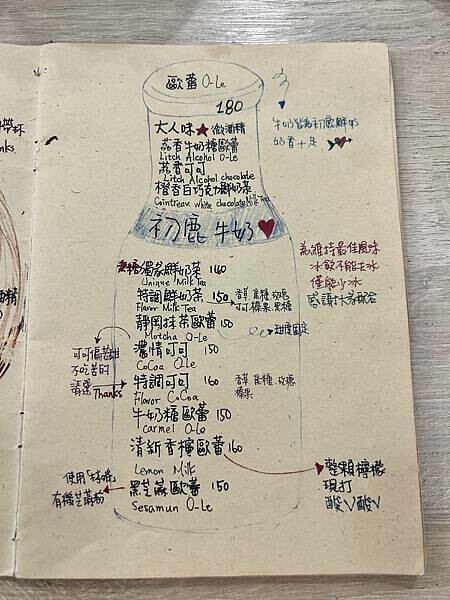 歐蕾 O-Le
180
大人味★微酒精
荔香牛奶糖歐蕾
Litch Alcohol O-Le
荔香可可
Litch Alcohol chocolate
橙香白巧克力鮮奶茶
Cointreau white chocolate Milk Tea
牛奶皆為初鹿鮮奶
奶香十足
初鹿 牛奶
為維持最佳風味
冰飲不能去冰
僅能少冰
感謝大家配合
黑糖獨家鮮奶茶 140
Unique Milk Tea
特調鮮奶茶 150
Flavor Milk Tea
香草 焦糖 玫瑰
可可 榛果 黑糖
靜岡抹茶歐蕾 150
Motcha O-Le
甜度固定
濃情可可 150
CoCoa O-Le
可可偏苦甜
不吃苦的
請避 Thanks
特調可可 160
Flavor CoCoa
香草 焦糖 玫瑰
榛果
牛奶糖歐蕾 150
Carmel O-Le
清新香檸歐蕾 160
Lemon Milk
整顆檸檬
現打
酸V酸V
黑芝麻歐蕾 150
Sesamun O-Le
有機芝麻粉